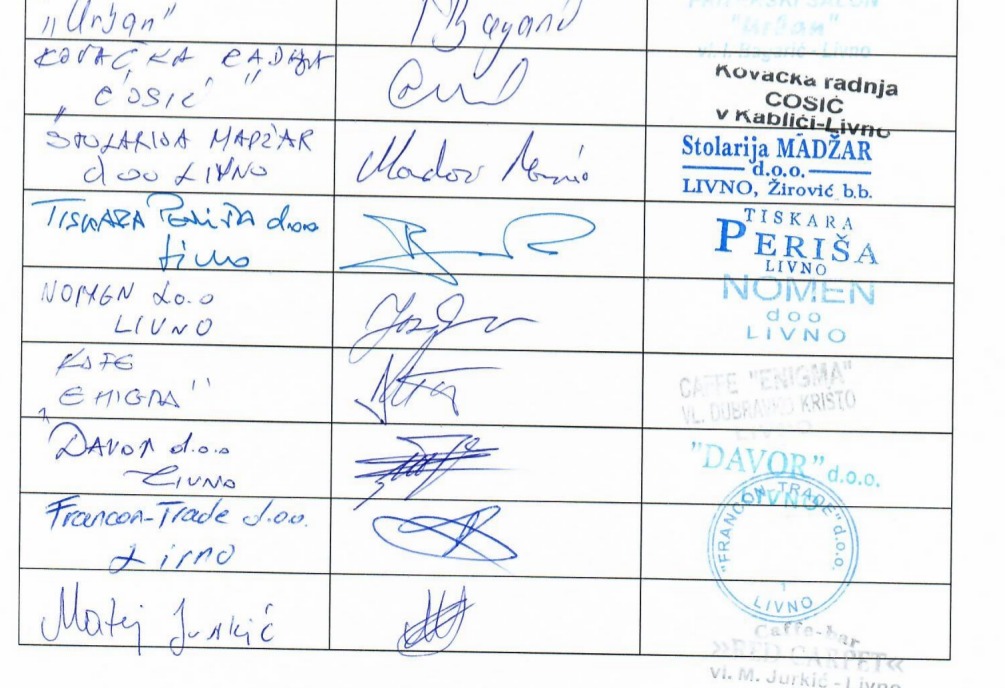 "Uržan"
Bagarić
"Uržan"
vl. I. Bagarić - Livno
KOVAČKA RADNJA
"ĆOSIĆ"
Kovačka radnja
ĆOSIĆ
v Kablići-Livno
STOLARIJA MADŽAR
doo LIVNO
Stolarija MADŽAR
d.o.o.
LIVNO, Žirović b.b.
TISKARA PERIŠA d.o.o
Livno
TISKARA
PERIŠA
LIVNO
NOMEN d.o.o
LIVNO
NOMEN
doo
LIVNO
KAFE
ENIGMA"
CAFFE "ENIGMA"
VL. DUBRAVKO KRISTO
LIVNO
DAVOR d.o.o
LIVNO
"DAVOR" d.o.o.
LIVNO
Francon-Trade d.o.o.
Livno
"FRANCON TRADE" d.o.o.
1
LIVNO
Matej Jurkić
Caffe-bar
»RED CARPET«
vl. M. Jurkić - Livno